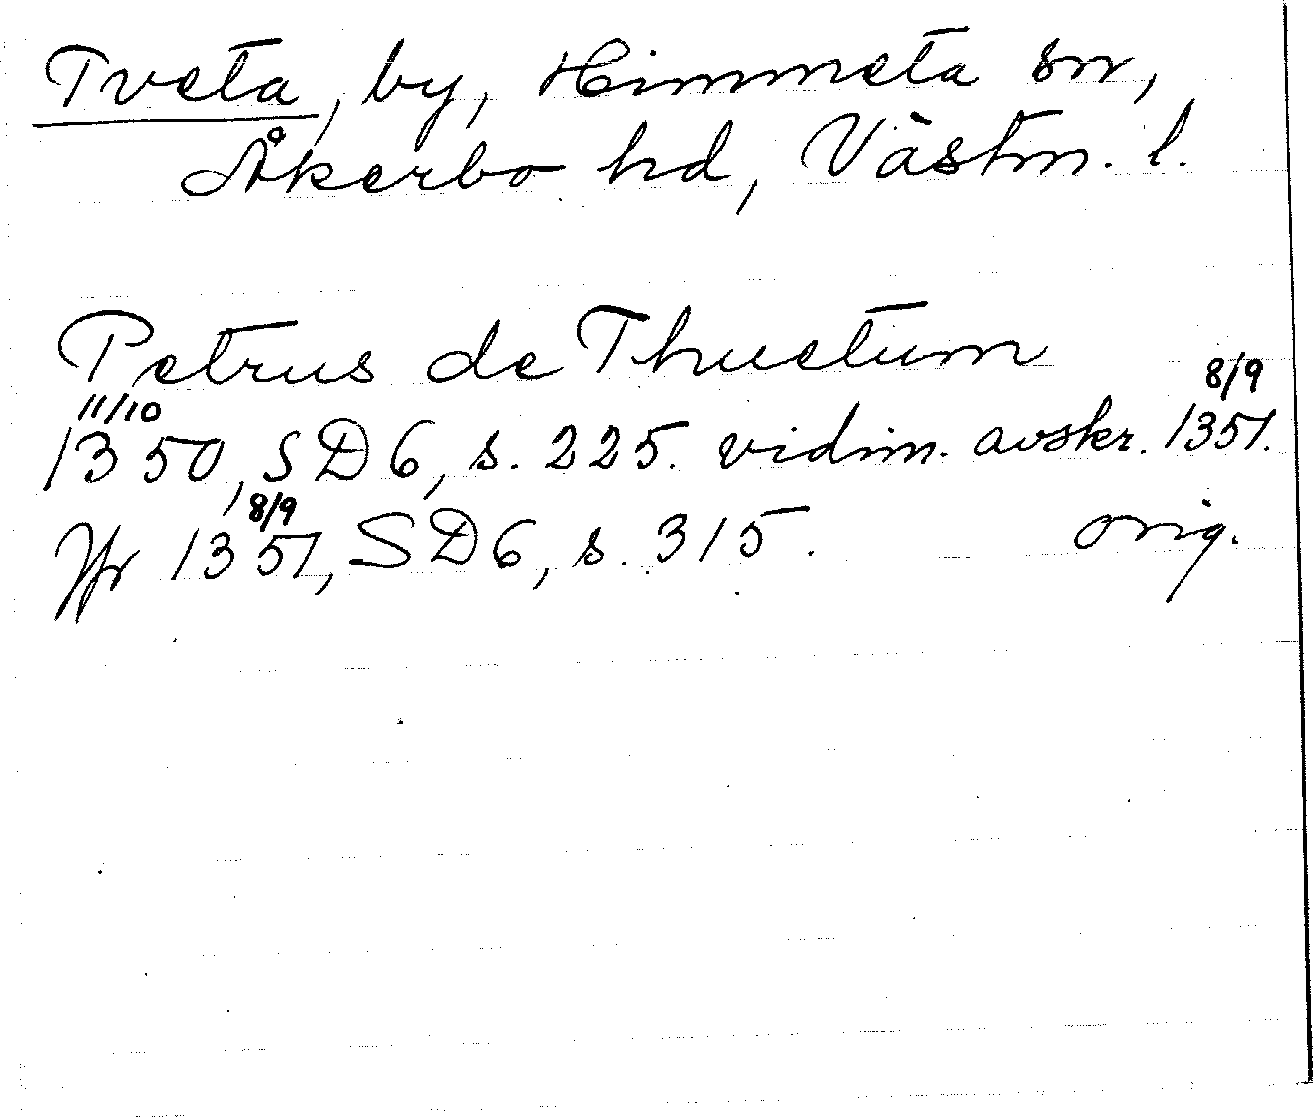 Tveta, by, Himmeta sn,
Åkerbo hd, Västm. l.
Petrus de Thuetum
11/10 8/9
1350, SD6, s. 225. vidim. avskr. 1351.
8/9
Jfr 1351, SD6, s. 315. orig.